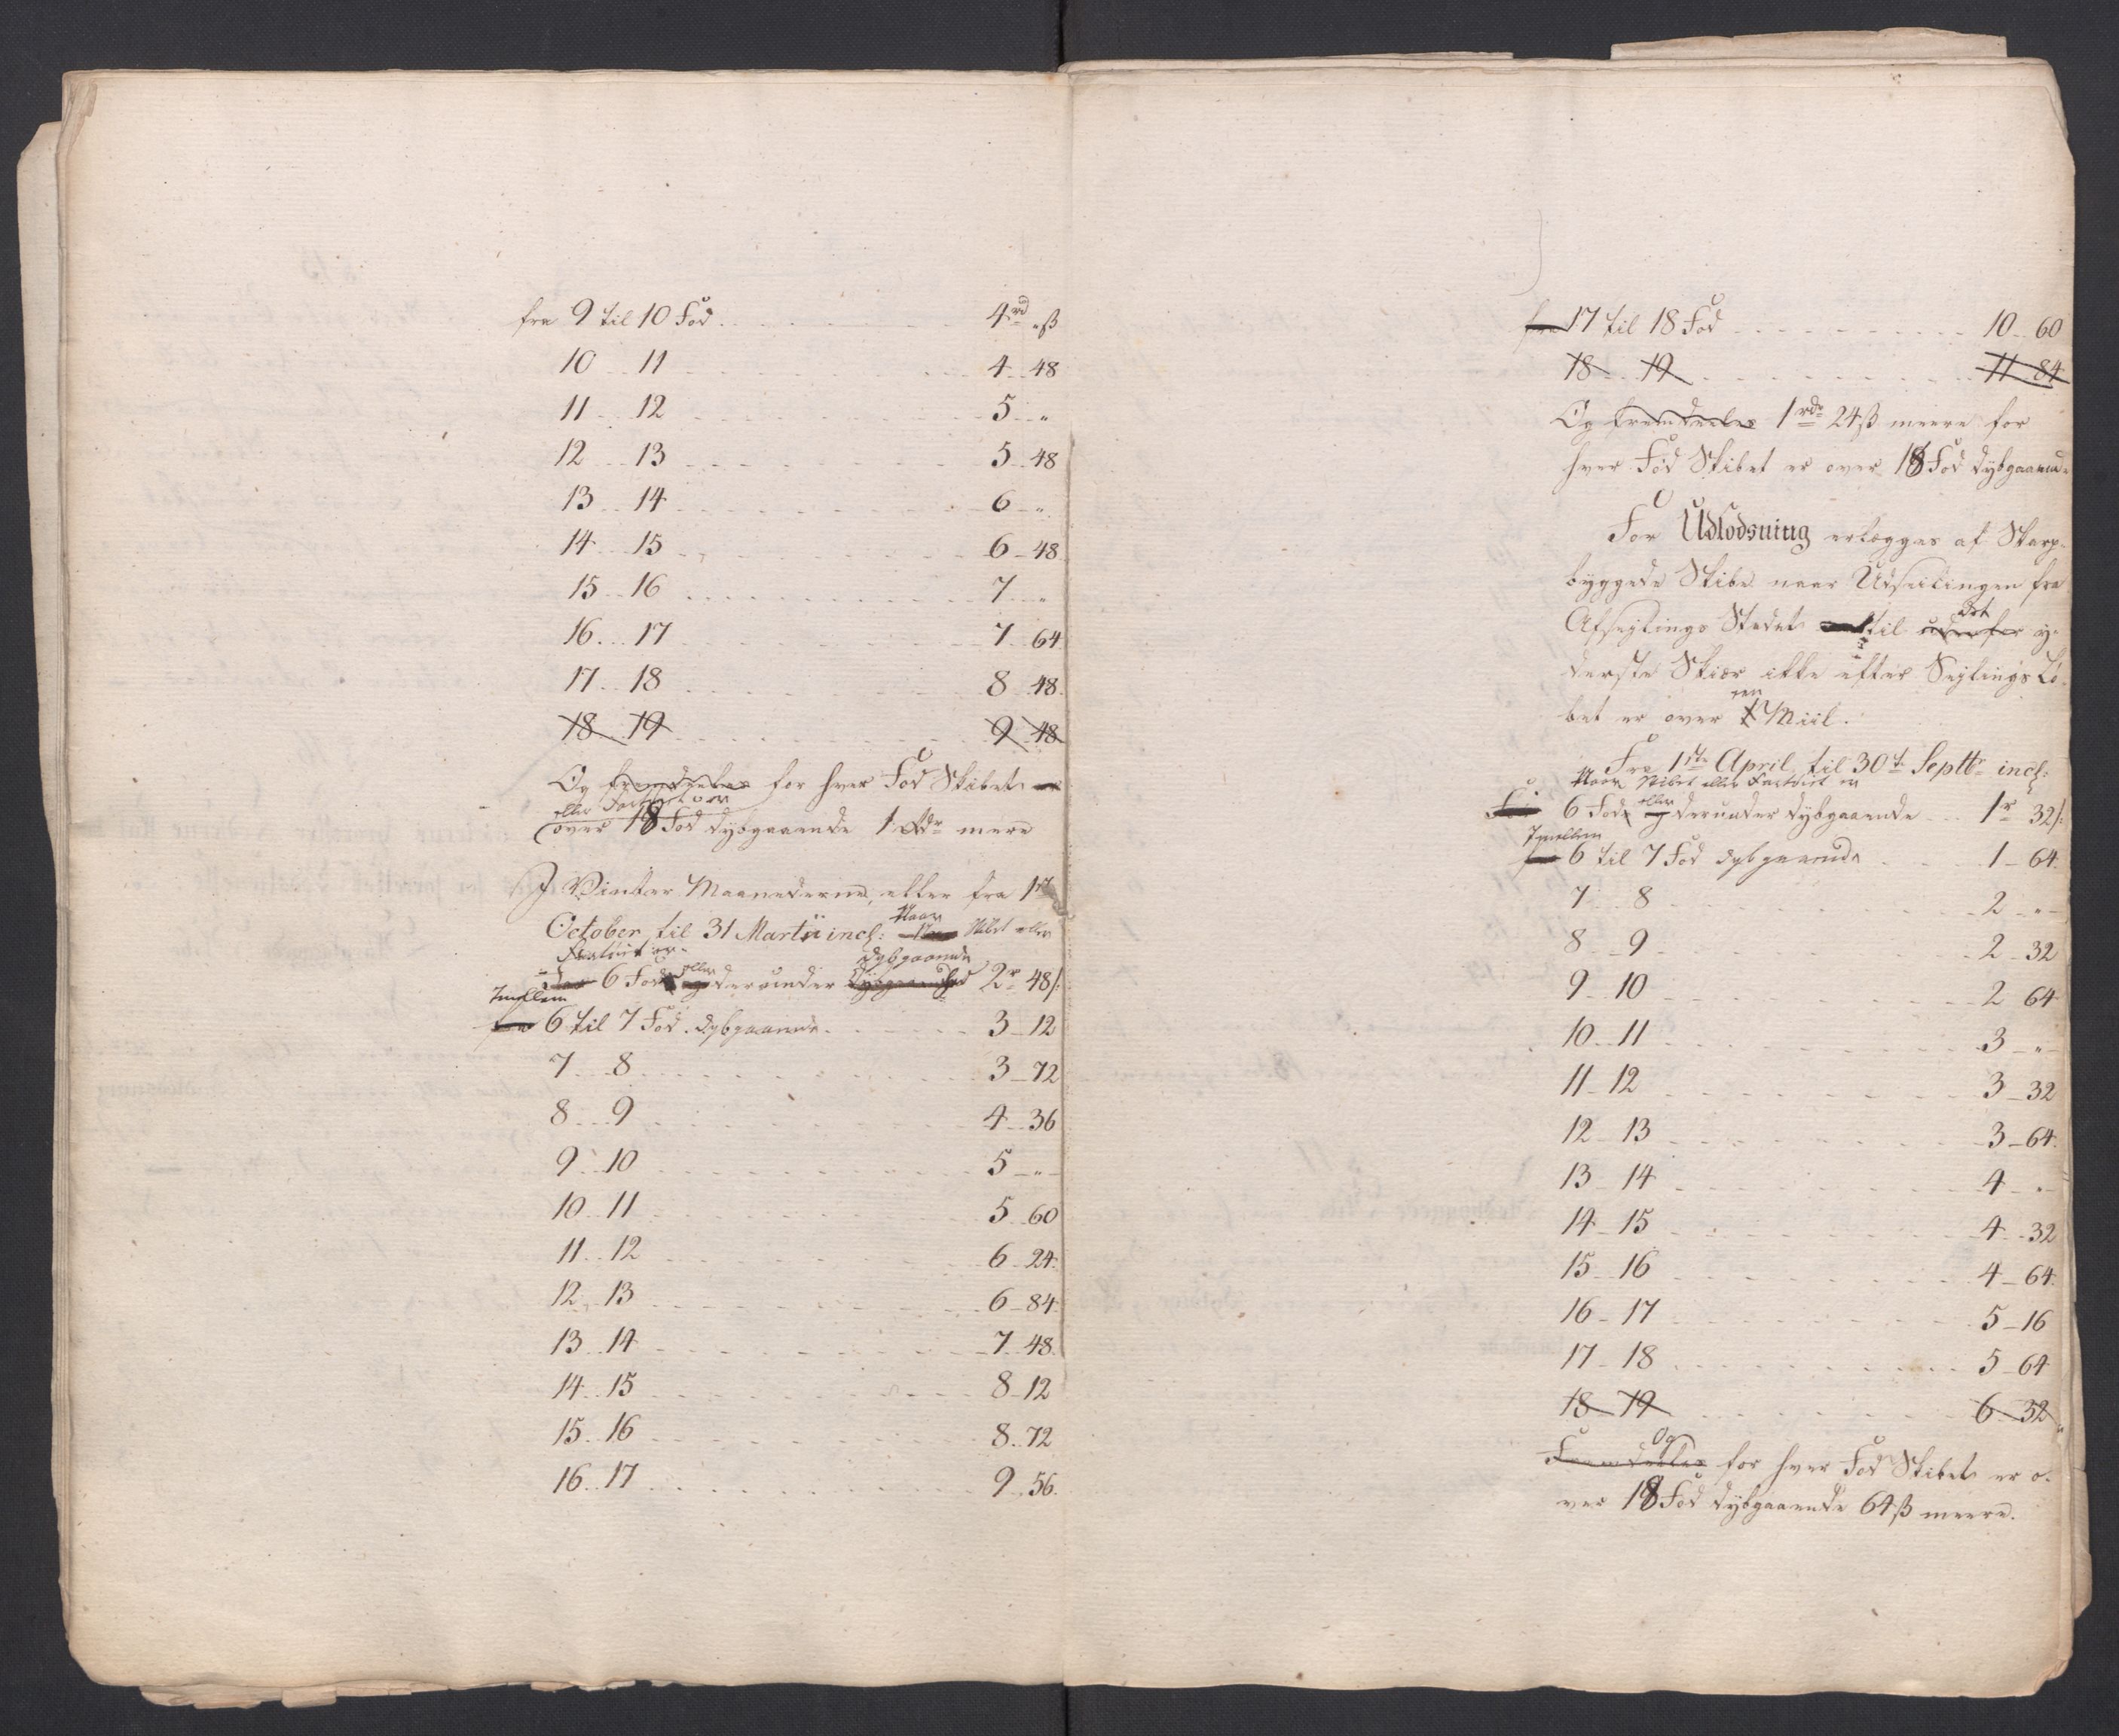 fra 9 til 10 Fod 4rd „ß
10 11 4 48
11 12 5 „
12 13 5 48
13 14 6 „
14 15 6 48
15 16 7 „
16 17 7 64
17 18 8 48
18 19 9 48
Og fremdeeles for hver Fod Skibet er
eller Fartøiet er
over 18 Fod dybgaaende 1 Rdr mere
I Vinter Maanederne, eller fra 1ste
October til 31 Martii incl: Naar Skibet eller
Fartøiet er
6 Fod eller derunder dybgaaende 2r 48ß
Imellem
6 til 7 Fod dybgaaende 3 12
7 8 3 72
8 9 4 36
9 10 5 „
10 11 5 60
11 12 6 24
12 13 6 84
13 14 7 48
14 15 8 12
15 16 8 72
16 17 9 56
fra 17 til 18 Fod 10 60
18 19 11 84
Og fremdeeles 1rdr 24ß meere for
hver Fod Skibet er over 18 Fod dybgaaende
For Udlodsning erlægges af Skarp-
byggede Skibe naar Udseilingen fra
Afseglings Stedet til det y-
derste Skiær ikke efter Seglings Lø-
bet er over een Miil.
Fra 1ste April til 30te Septbr incl:
Naar Skibet eller Fartøiet er
6 Fod eller derunder dybgaaende 1r 32ß
Imellem
6 til 7 Fod dybgaaende 1 64
7 8 2 „
8 9 2 32
9 10 2 64
10 11 3 „
11 12 3 32
12 13 3 64
13 14 4 „
14 15 4 32
15 16 4 64
16 17 5 16
17 18 5 64
18 19 6 32
Og
Fremdeeles for hver Fod Skibet er o-
ver 18 Fod dybgaaende 64ß meere.